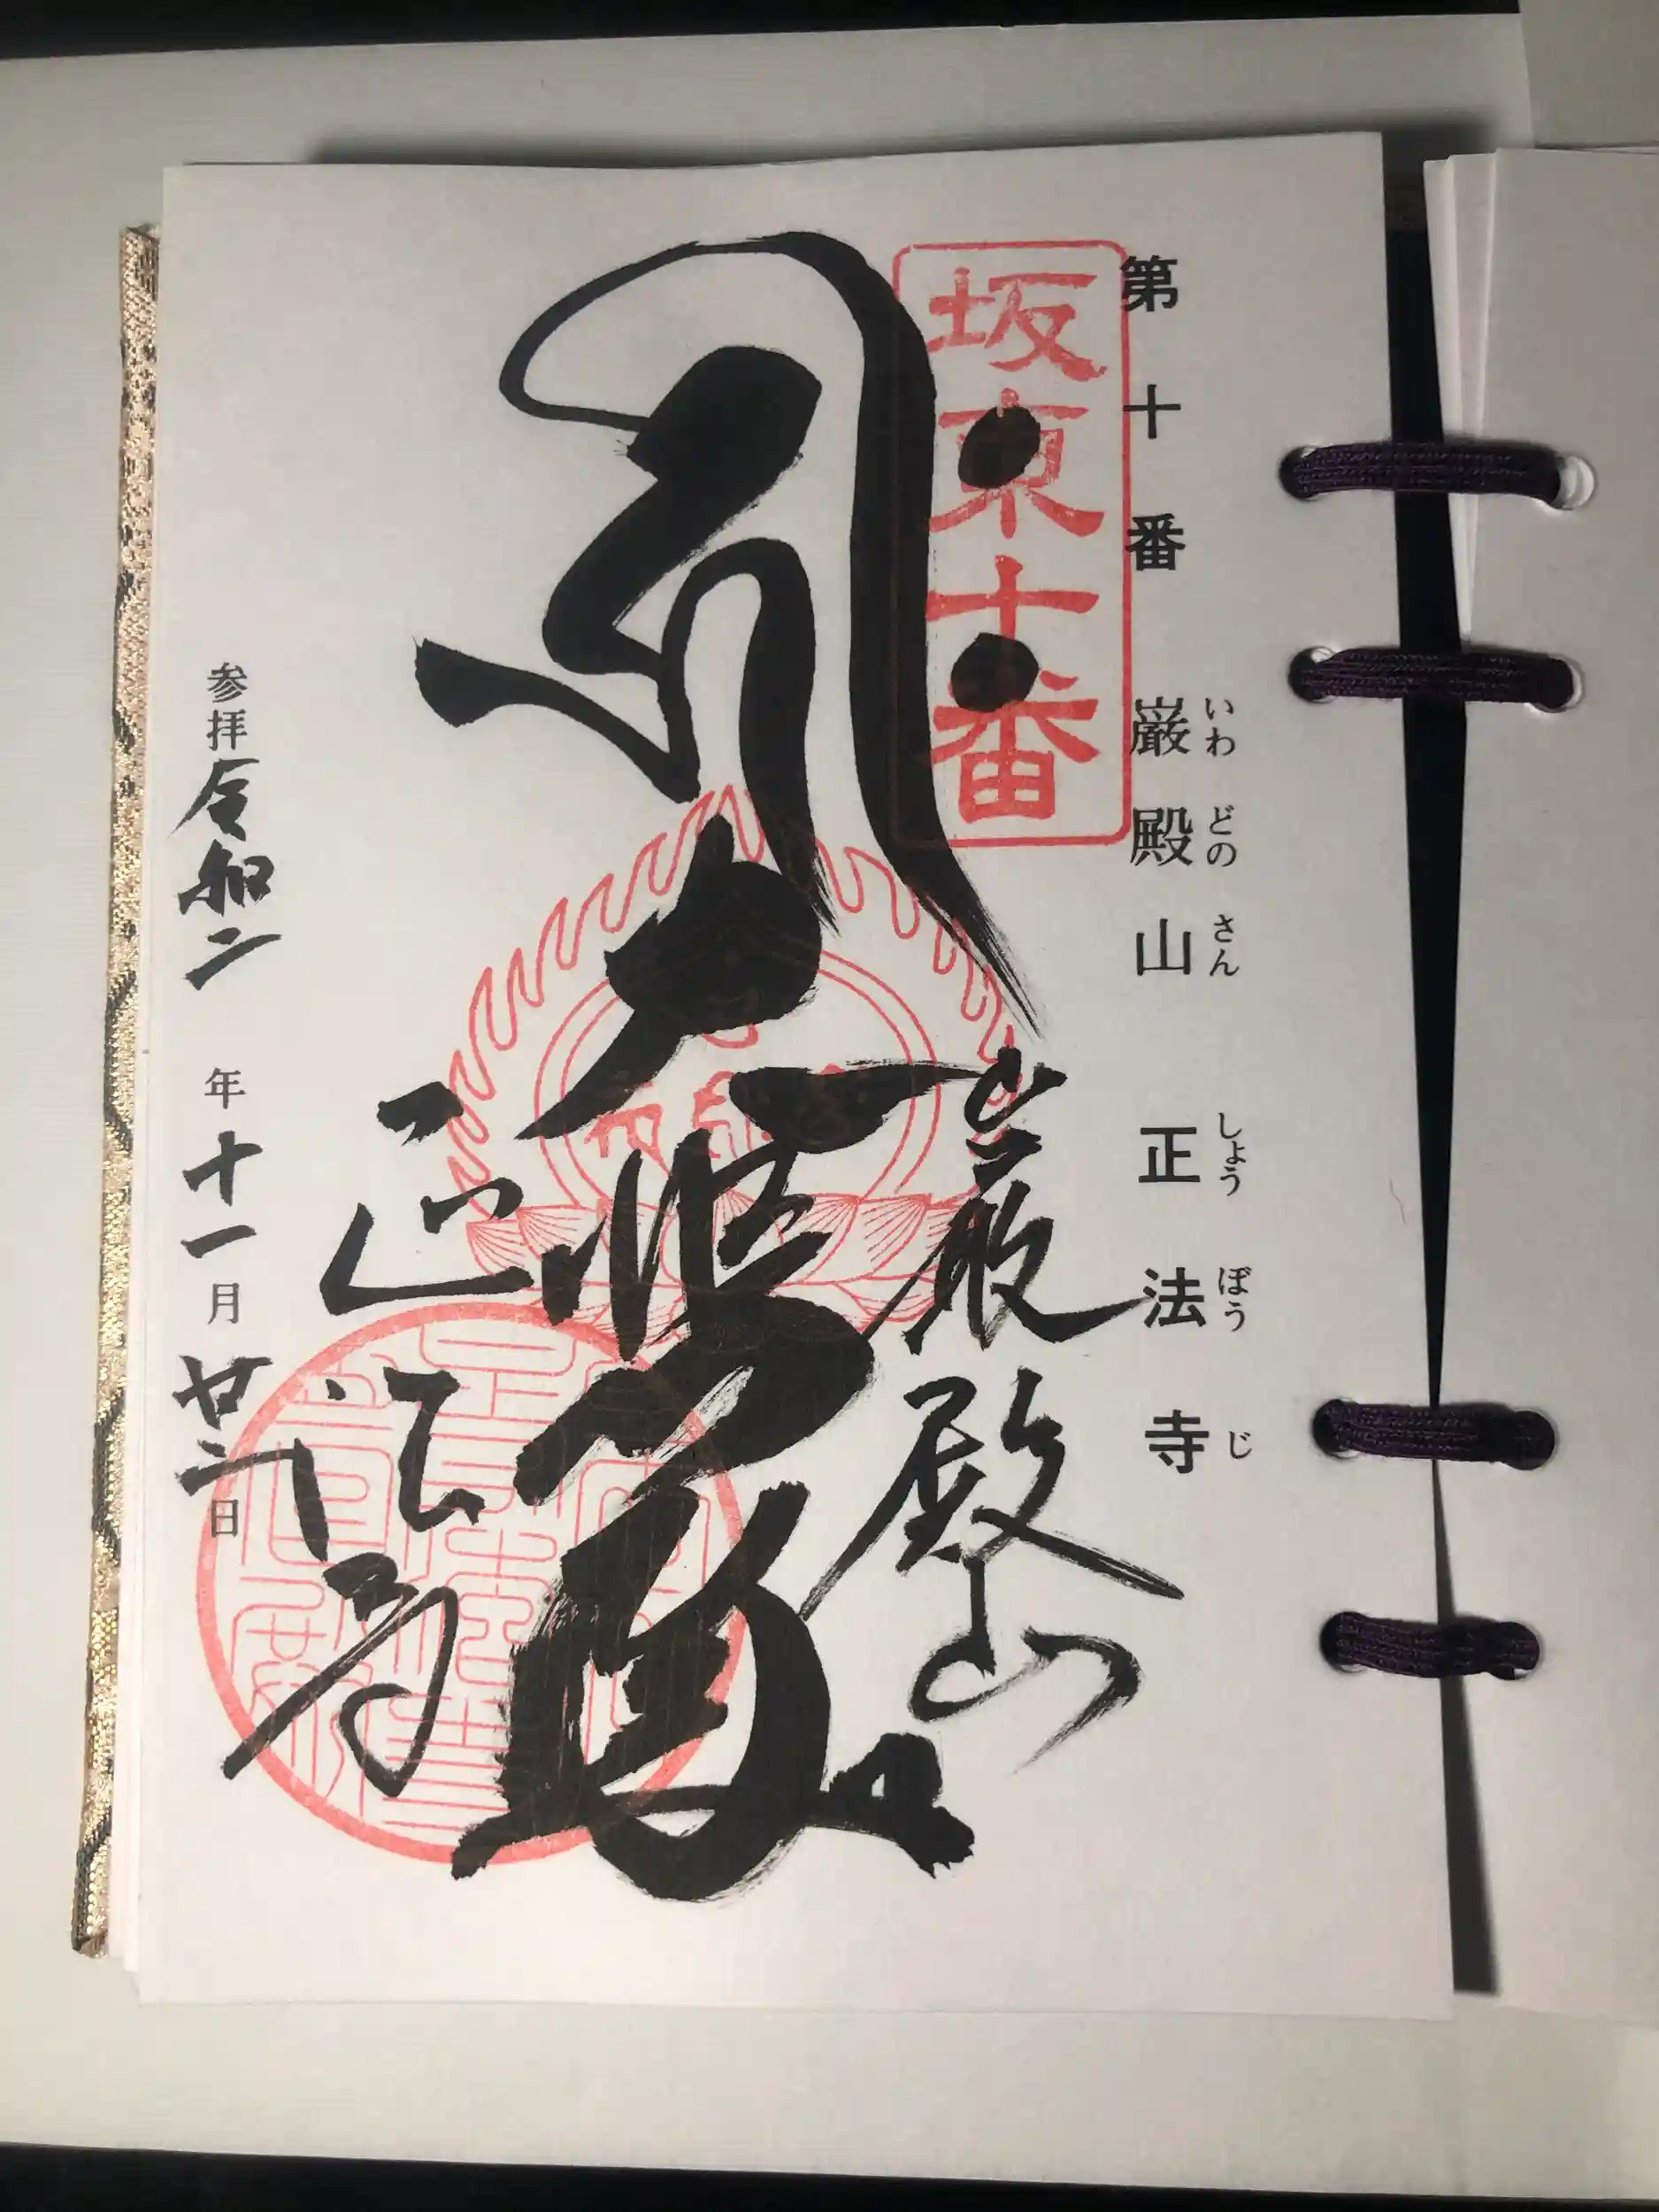 第十番 巌殿山 正法寺
いわ どの さん しょう ぼう じ
坂東十番
巌殿山
大悲殿
正法寺
参拝令和二年十一月廿二日